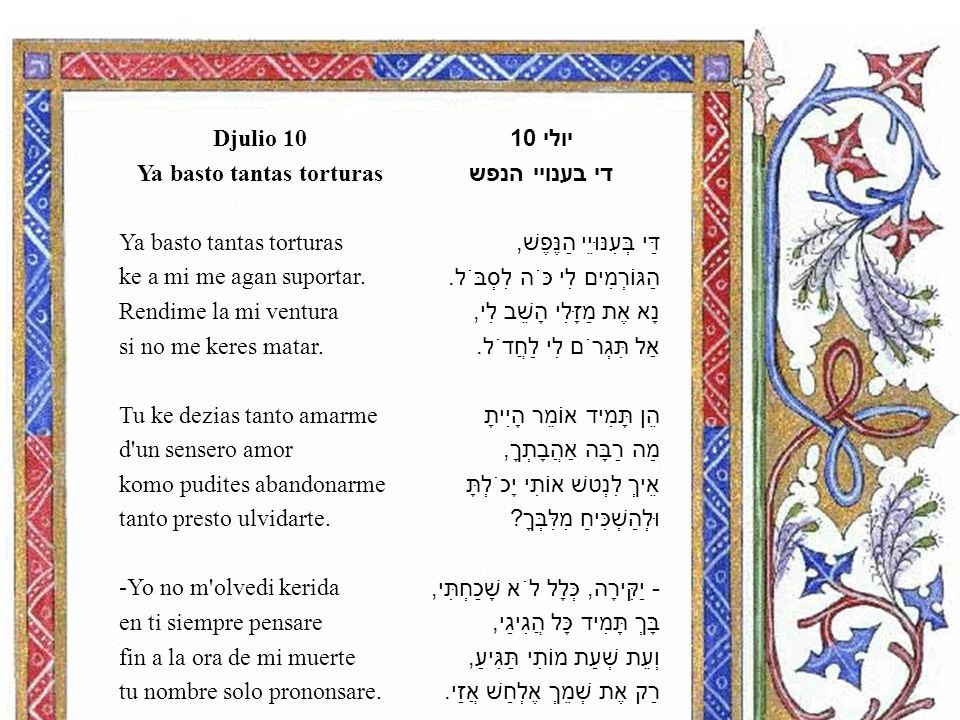 Djulio 10
Ya basto tantas torturas
Ya basto tantas torturas
ke a mi me agan suportar.
Rendime la mi ventura
si no me keres matar.
Tu ke dezias tanto amarme
d'un sensero amor
komo pudites abandonarme
tanto presto ulvidarte.
-Yo no m'olvedi kerida
en ti siempre pensare
fin a la ora de mi muerte
tu nombre solo prononsare.
יולי 10
די בענויי הנפש
דַּי בְּעִנּוּיֵי הַנֶּפֶשׁ,
הַגּוֹרְמִים לִי כֹּה לִסְבֹּל.
נָא אֶת מַזָּלִי הָשֵׁב לִי,
אַל תִּגְרֹם לִי לַחֲדֹל.
הֵן תָּמִיד אוֹמֵר הָיִיתָ
מַה רַבָּה אַהֲבָתְךָ,
אֵיךְ לִנְטשׁ אוֹתִי יָכֹלְתָּ
וּלְהַשְׁכִּיחַ מִלִּבְּךָ?
- יַקִּירָה, כְּלָל לֹא שָׁכַחְתִּי,
בָּךְ תָּמִיד כָּל הֲגִיגַי,
וְעֵת שְׁעַת מוֹתִי תַּגִּיעַ,
רַק אֶת שְׁמֵךְ אֶלְחַשׁ אֲזַי.